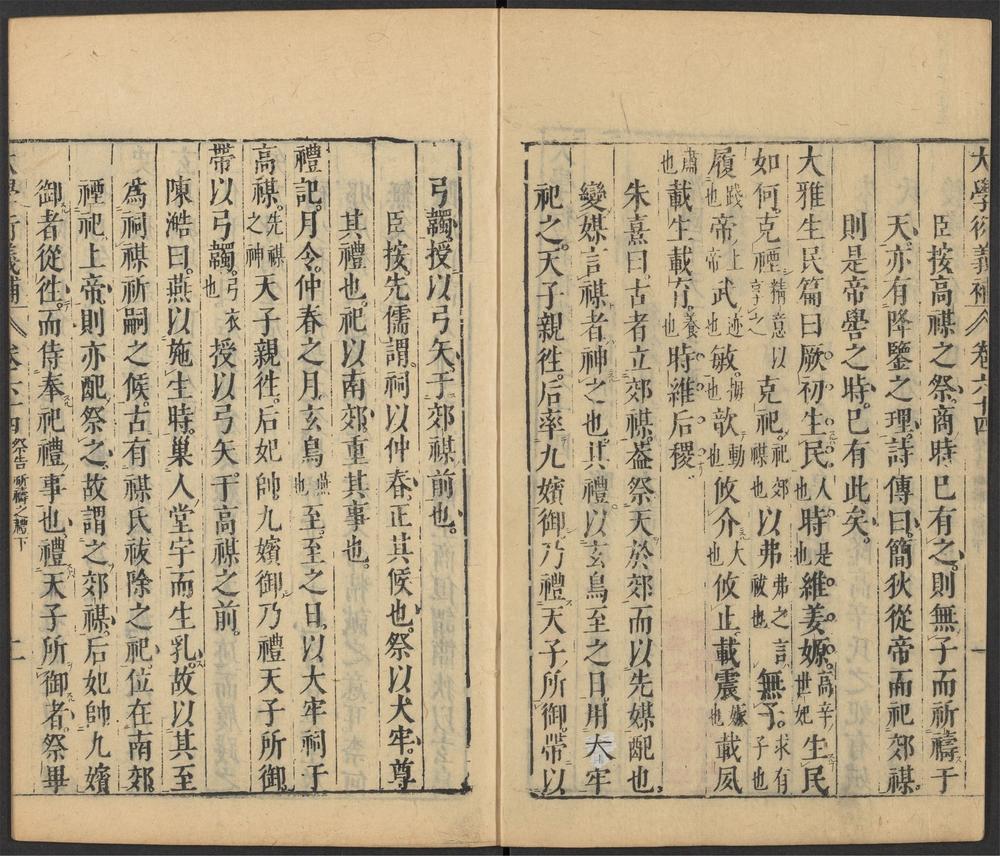 大學衍義補 卷六十四 一
臣按高禖之祭商時已有之則無子而祈禱于
天亦有降鑒之理詩傳曰簡狄從帝而祀郊禖
則是帝嚳之時已有此矣。
大雅生民篇曰厥初生民人也時是也維姜嫄高辛世妃生民
如何。克禋精意以享之克祀祀郊禖也以弗弗之言祓也無子。求有子也
履踐也帝上帝武迹也敏拇也歆動也攸介大也攸止載震娠也載夙
肅也載生載育養也時維后稷
朱熹曰。古者立郊禖。葢祭天於郊而以先媒配也。
變媒言禖者神之也其禮以玄鳥至之日用大牢
祀之。天子親往。后率九嬪御乃禮天子所御。帶以
弓韣授以弓矢于郊禖前也。
臣按先儒謂祠以仲春正其候也祭以犬牢。尊
其禮也祀以南郊重其事也。
禮記。月令。仲春之月。玄鳥燕也至。至之日。以大牢祠于
高禖。先禖之神天子親往。后妃帥九嬪御乃禮天子所御
帶以弓韣。弓衣也授以弓矢。于高禖之前。
陳澔曰。燕以施生時。巢人堂宇而生乳。故以其至
爲祠禖祈嗣之候。古有禖氏祓除之祀位在南郊。
禋祀上帝則亦配祭之故謂之郊禖。后妃帥九嬪
御者從往。而侍奉祀禮事也禮天子所御者祭畢
大學衍義補 卷六十四 祭告祈禱之禮下 二